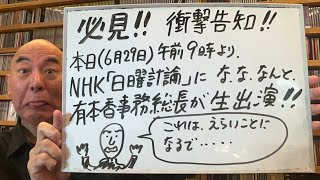 必見!! 衝撃告知!!
本日(6月29日)午前9時より、
NHK「日曜討論」に な、な、なんと、
有本香事務総長が生出演!!
これは、えらいことに
なるで・・・・・